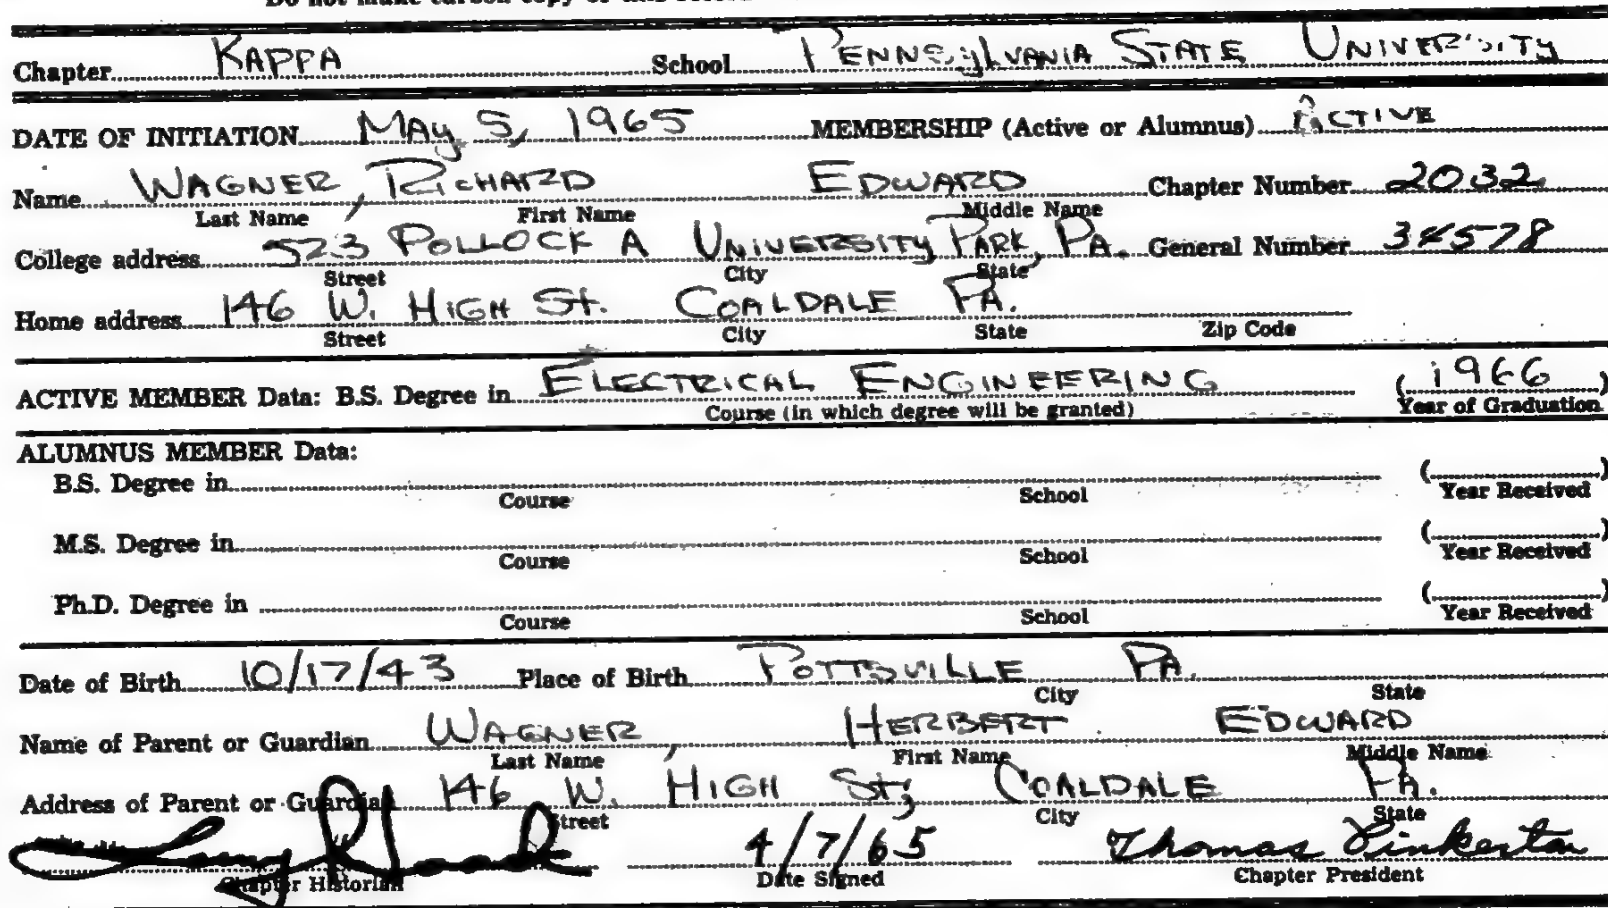 Chapter KAPPA School PENNSylVANIA STATE UNIVERSITY
DATE OF INITIATION MAy 5, 1965 MEMBERSHIP (Active or Alumnus) ACTIVE
Name WAGNER, RICHARD EDWARD Chapter Number 2032
Last Name First Name Middle Name
College address 523 POLLOCK A UNIVERSITY PARK, PA. General Number 34578
Street City State
Home address 146 W. HIGH St. COALDALE PA.
Street City State Zip Code
ACTIVE MEMBER Data: B.S. Degree in ELECTRICAL ENGINEERING (1966)
Course (in which degree will be granted) Year of Graduation
ALUMNUS MEMBER Data:
B.S. Degree in ( )
Course School Year Received
M.S. Degree in ( )
Course School Year Received
Ph.D. Degree in ( )
Course School Year Received
Date of Birth 10/17/43 Place of Birth POTTSVILLE PA.
City State
Name of Parent or Guardian WAGNER, HERBERT EDWARD
Last Name First Name Middle Name
Address of Parent or Guardian 146 W. HIGH St; COALDALE PA.
Street City State
4/7/65 Thomas Pinkerton
Chapter Historian Date Signed Chapter President